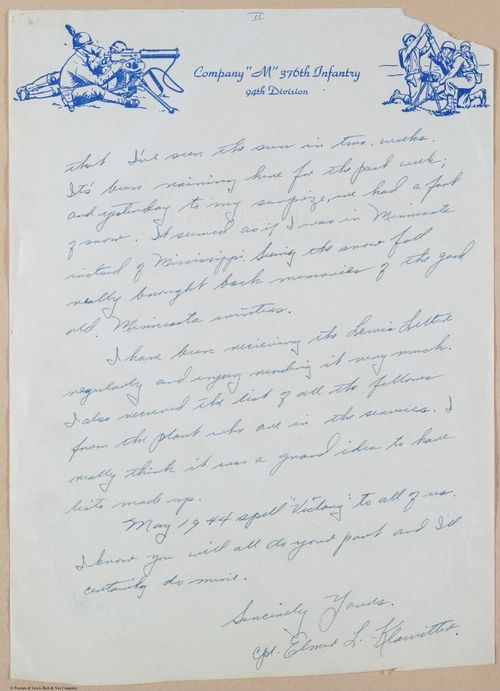 II
Company "M" 376th Infantry
94th Division
that I've seen the sun in two, weeks.
It's been raining here for the past week;
and yesterday to my surprize, we had a foot
of snow. It seemed as if I was in Minnesota
instead of Mississippi. Seeing the snow fall
really brought back memories of the good
old Minnesota winters.
I have been recieving the Lewis Letter
regularly and enjoy reading it very much.
I also recieved the list of all the fellows
from the plant who are in the services. I
really think it was a grand idea to have
lists made up.
May 1944 spell "Victory" to all of us.
I know you will all do your part and I'll
certainly do mine.
Sincerely Yours.
Cpl. Elmer L. Klawitter.